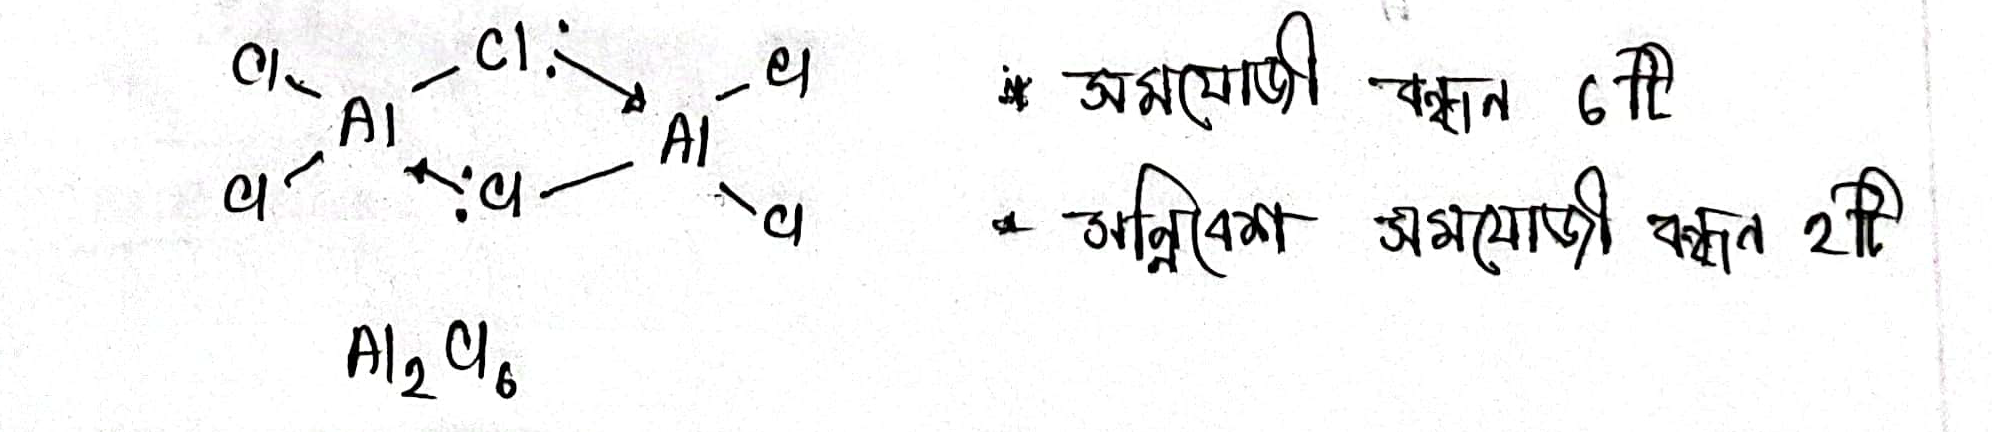 Cl Cl: Cl
Al Al
Cl :Cl Cl
* সমযোজী বন্ধন 6টি
* সন্নিবেশ সমযোজী বন্ধন 2টি
Al₂Cl₆